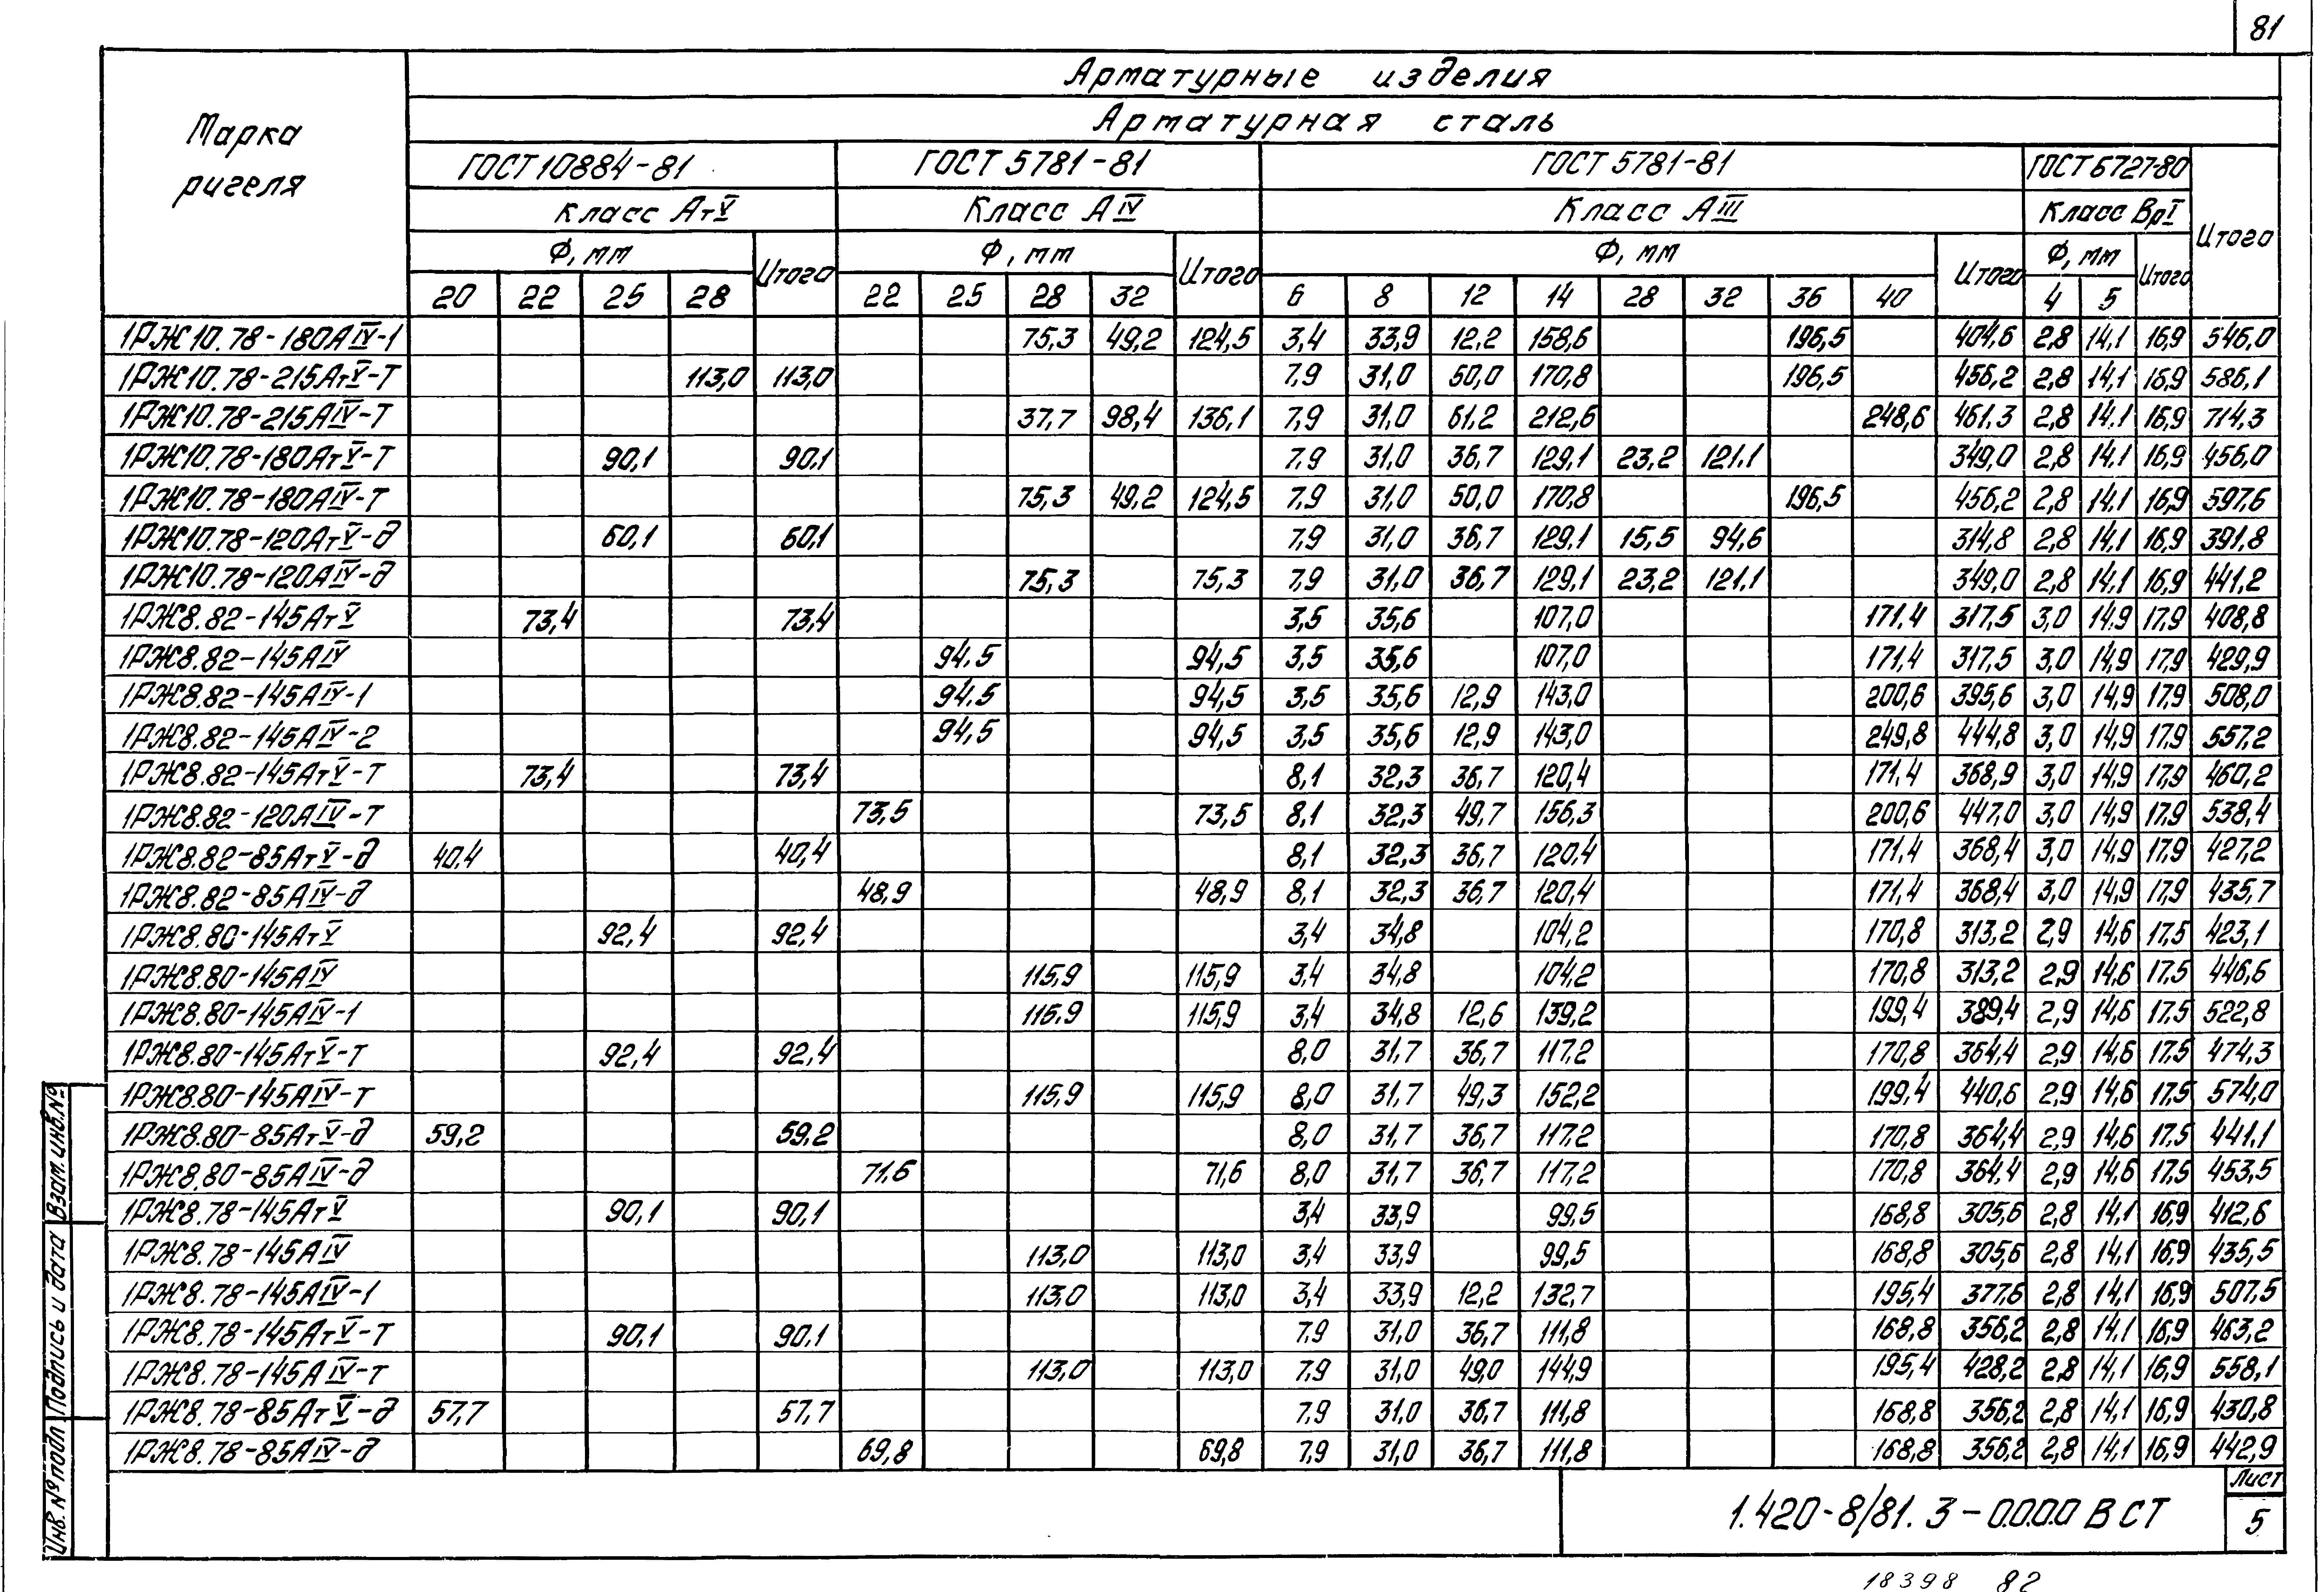 81
Арматурные изделия
Арматурная сталь
Марка ригеля
ГОСТ 10884-81 ГОСТ 5781-81 ГОСТ 5781-81 ГОСТ 6727-80 Итого
Класс АтV Класс АIV Класс АIII Класс ВрI
Ф, мм Итого Ф, мм Итого Ф, мм Итого Ф, мм Итого
20 22 25 28 22 25 28 32 6 8 12 14 28 32 36 40 4 5
1РЖ10.78-180АIV-1 75,3 49,2 124,5 3,4 33,9 12,2 158,6 196,5 404,6 2,8 14,1 16,9 546,0
1РЖ10.78-215АтV-Т 113,0 113,0 7,9 31,0 50,0 170,8 196,5 456,2 2,8 14,1 16,9 586,1
1РЖ10.78-215АIV-Т 37,7 98,4 136,1 7,9 31,0 61,2 212,6 248,6 461,3 2,8 14,1 16,9 714,3
1РЖ10.78-180АтV-Т 90,1 90,1 7,9 31,0 36,7 129,1 23,2 121,1 349,0 2,8 14,1 16,9 456,0
1РЖ10.78-180АIV-Т 75,3 49,2 124,5 7,9 31,0 50,0 170,8 196,5 456,2 2,8 14,1 16,9 597,6
1РЖ10.78-120АтV-д 60,1 60,1 7,9 31,0 36,7 129,1 15,5 94,6 314,8 2,8 14,1 16,9 391,8
1РЖ10.78-120АIV-д 75,3 75,3 7,9 31,0 36,7 129,1 23,2 121,1 349,0 2,8 14,1 16,9 441,2
1РЖ8.82-145АтV 73,4 73,4 3,5 35,6 107,0 171,4 317,5 3,0 14,9 17,9 408,8
1РЖ8.82-145АIV 94,5 94,5 3,5 35,6 107,0 171,4 317,5 3,0 14,9 17,9 429,9
1РЖ8.82-145АIV-1 94,5 94,5 3,5 35,6 12,9 143,0 200,6 395,6 3,0 14,9 17,9 508,0
1РЖ8.82-145АIV-2 94,5 94,5 3,5 35,6 12,9 143,0 249,8 444,8 3,0 14,9 17,9 557,2
1РЖ8.82-145АтV-Т 73,4 73,4 8,1 32,3 36,7 120,4 171,4 368,9 3,0 14,9 17,9 460,2
1РЖ8.82-120АIV-Т 73,5 73,5 8,1 32,3 49,7 156,3 200,6 447,0 3,0 14,9 17,9 538,4
1РЖ8.82-85АтV-д 40,4 40,4 8,1 32,3 36,7 120,4 171,4 368,4 3,0 14,9 17,9 427,2
1РЖ8.82-85АIV-д 48,9 48,9 8,1 32,3 36,7 120,4 171,4 368,4 3,0 14,9 17,9 435,7
1РЖ8.80-145АтV 92,4 92,4 3,4 34,8 104,2 170,8 313,2 2,9 14,6 17,5 423,1
1РЖ8.80-145АIV 115,9 115,9 3,4 34,8 104,2 170,8 313,2 2,9 14,6 17,5 446,6
1РЖ8.80-145АIV-1 115,9 115,9 3,4 34,8 12,6 139,2 199,4 389,4 2,9 14,6 17,5 522,8
1РЖ8.80-145АтV-Т 92,4 92,4 8,0 31,7 36,7 117,2 170,8 364,4 2,9 14,6 17,5 474,3
1РЖ8.80-145АIV-Т 115,9 115,9 8,0 31,7 49,3 152,2 199,4 440,6 2,9 14,6 17,5 574,0
1РЖ8.80-85АтV-д 59,2 59,2 8,0 31,7 36,7 117,2 170,8 364,4 2,9 14,6 17,5 441,1
1РЖ8.80-85АIV-д 71,6 71,6 8,0 31,7 36,7 117,2 170,8 364,4 2,9 14,6 17,5 453,5
1РЖ8.78-145АтV 90,1 90,1 3,4 33,9 99,5 168,8 305,6 2,8 14,1 16,9 412,6
1РЖ8.78-145АIV 113,0 113,0 3,4 33,9 99,5 168,8 305,6 2,8 14,1 16,9 435,5
1РЖ8.78-145АIV-1 113,0 113,0 3,4 33,9 12,2 132,7 195,4 377,6 2,8 14,1 16,9 507,5
1РЖ8.78-145АтV-Т 90,1 90,1 7,9 31,0 36,7 111,8 168,8 356,2 2,8 14,1 16,9 463,2
1РЖ8.78-145АIV-т 113,0 113,0 7,9 31,0 49,0 144,9 195,4 428,2 2,8 14,1 16,9 558,1
1РЖ8.78-85АтV-д 57,7 57,7 7,9 31,0 36,7 111,8 168,8 356,2 2,8 14,1 16,9 430,8
1РЖ8.78-85АIV-д 69,8 69,8 7,9 31,0 36,7 111,8 168,8 356,2 2,8 14,1 16,9 442,9
Инв.№ подл Подпись и дата Взам.инв.№
1.420-8/81.3-0.0.0.0 ВСТ
Лист
5
18398 82